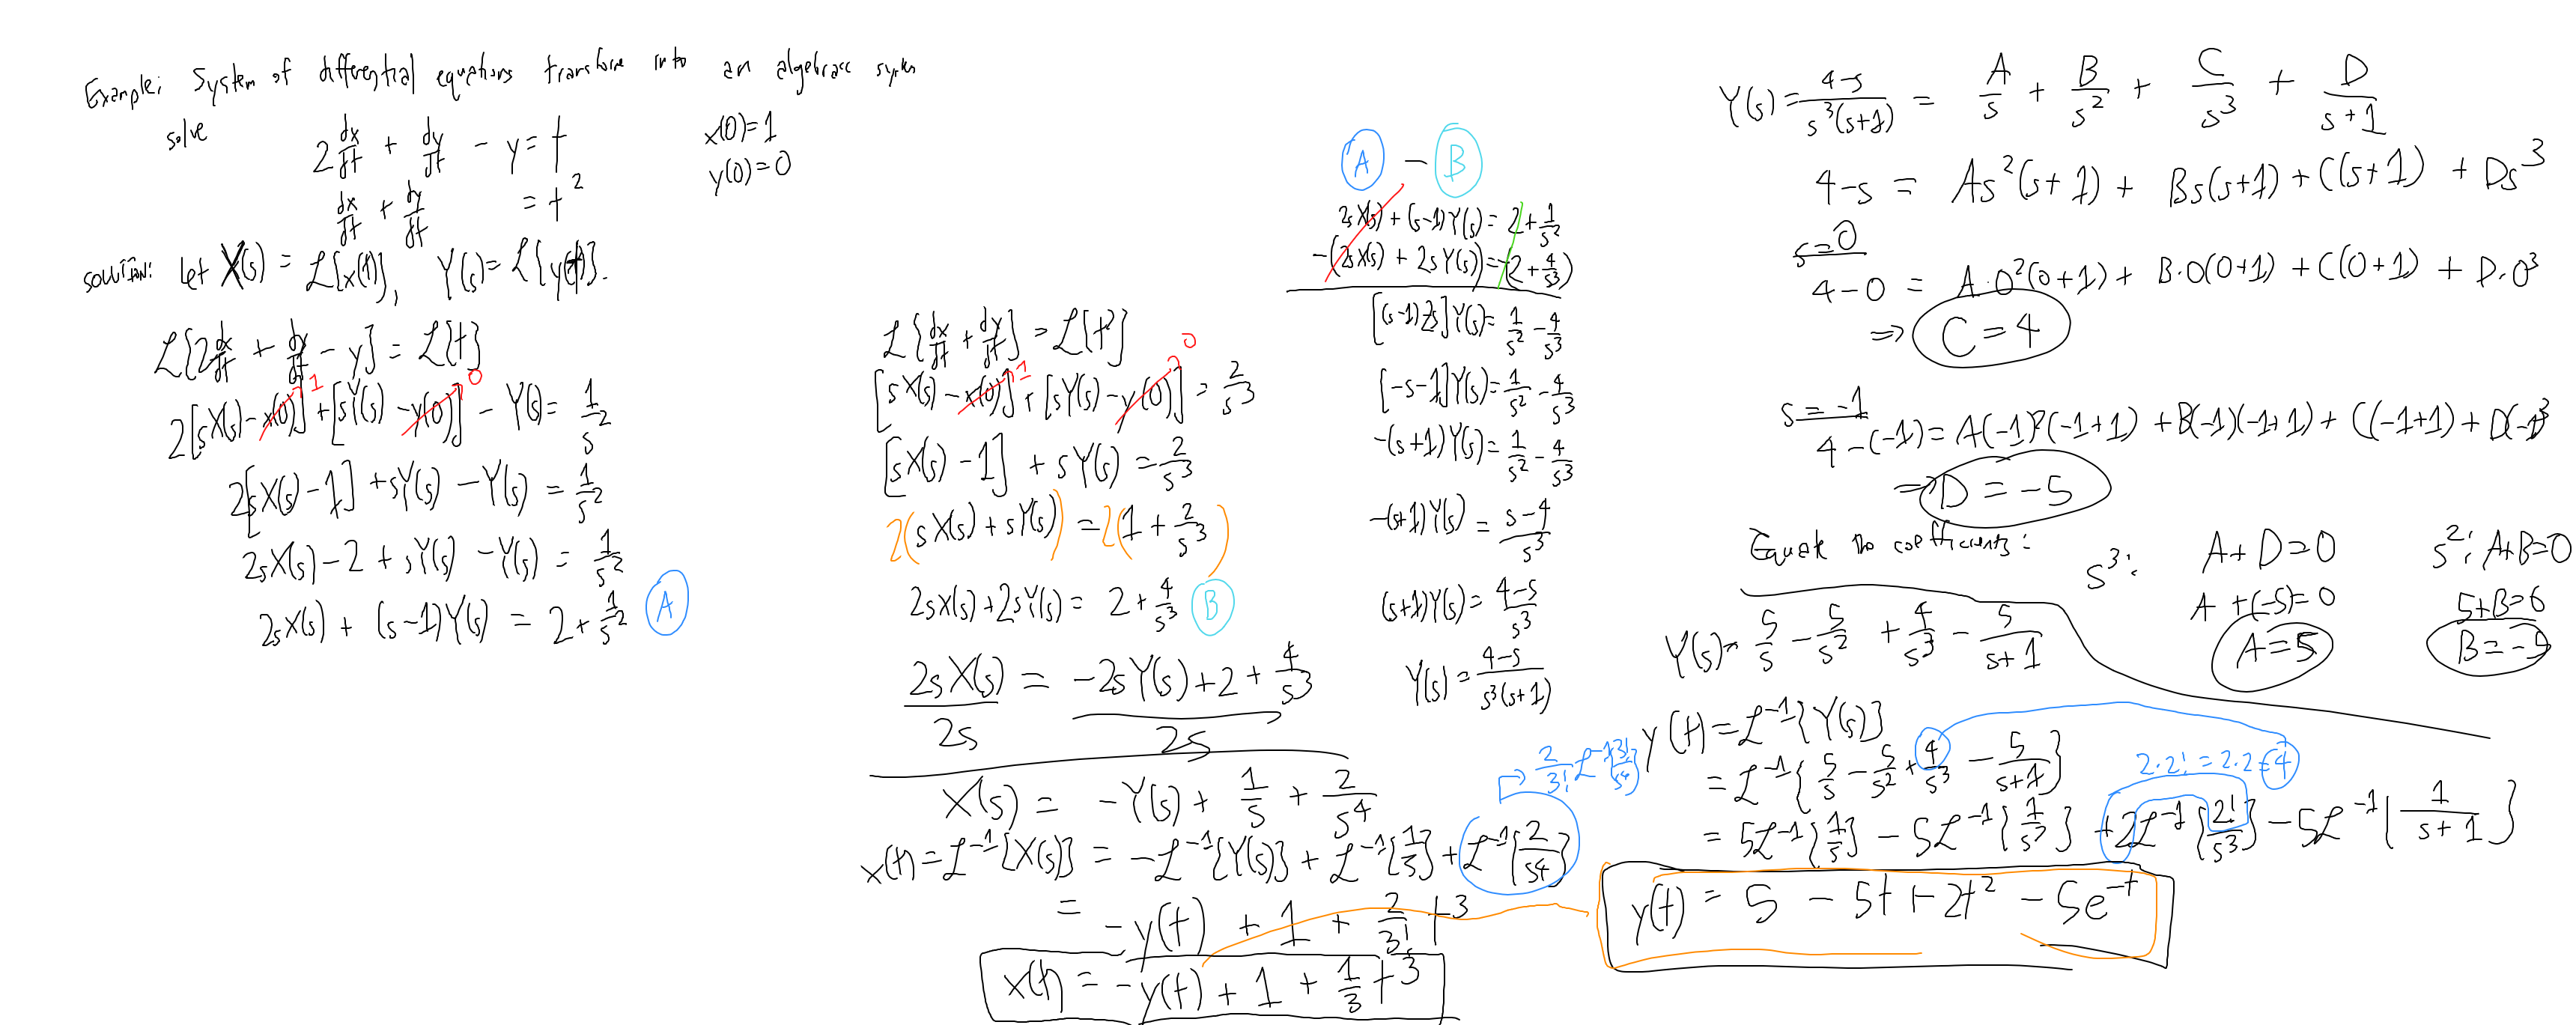 Example: System of differential equations transform into an algebraic system
solve 2 dx/dt + dy/dt - y = t x(0)=1
dx/dt + dy/dt = t^2 y(0)=0
solution: Let X(s) = ℒ{x(t)}, Y(s) = ℒ{y(t)}.
ℒ{2 dx/dt + dy/dt - y} = ℒ{t}
2[sX(s) - x(0)] + [sY(s) - y(0)] - Y(s) = 1/s^2
1 0
2[sX(s) - 1] + sY(s) - Y(s) = 1/s^2
2sX(s) - 2 + sY(s) - Y(s) = 1/s^2
2sX(s) + (s-1)Y(s) = 2 + 1/s^2 A
ℒ{dx/dt + dy/dt} = ℒ{t^2}
[sX(s) - x(0)] + [sY(s) - y(0)] = 2/s^3
1 0
[sX(s) - 1] + sY(s) = 2/s^3
2(sX(s) + sY(s)) = 2(1 + 2/s^3)
2sX(s) + 2sY(s) = 2 + 4/s^3 B
2sX(s)/2s = -2sY(s) + 2 + 4/s^3 / 2s
X(s) = -Y(s) + 1/s + 2/s^4
x(t) = ℒ^-1{X(s)} = -ℒ^-1{Y(s)} + ℒ^-1{1/s} + ℒ^-1{2/s^4}
→ 2/3! ℒ^-1{3!/s^4}
= -y(t) + 1 + 2/3! t^3
x(t) = -y(t) + 1 + 1/3 t^3
A - B
2sX(s) + (s-1)Y(s) = 2 + 1/s^2
-(2sX(s) + 2sY(s)) = -(2 + 4/s^3)
[(s-1)-2s]Y(s) = 1/s^2 - 4/s^3
[-s-1]Y(s) = 1/s^2 - 4/s^3
-(s+1)Y(s) = 1/s^2 - 4/s^3
-(s+1)Y(s) = s-4/s^3
(s+1)Y(s) = 4-s/s^3
Y(s) = 4-s/s^3(s+1)
Y(s) = 4-s/s^3(s+1) = A/s + B/s^2 + C/s^3 + D/s+1
4-s = As^2(s+1) + Bs(s+1) + C(s+1) + Ds^3
s=0
4-0 = A·0^2(0+1) + B·0(0+1) + C(0+1) + D·0^3
⇒ C = 4
s=-1
4-(-1) = A(-1)^2(-1+1) + B(-1)(-1+1) + C(-1+1) + D(-1)^3
⇒ D = -5
Equate the coefficients: s^3: A+D=0 s^2: A+B=0
A+(-5)=0 5+B=0
A=5 B=-5
Y(s) = 5/s - 5/s^2 + 4/s^3 - 5/s+1
y(t) = ℒ^-1{Y(s)}
= ℒ^-1{5/s - 5/s^2 + 4/s^3 - 5/s+1}
2·2! = 2·2 = 4
= 5ℒ^-1{1/s} - 5ℒ^-1{1/s^2} + 2ℒ^-1{2!/s^3} - 5ℒ^-1{1/s+1}
y(t) = 5 - 5t + 2t^2 - 5e^-t